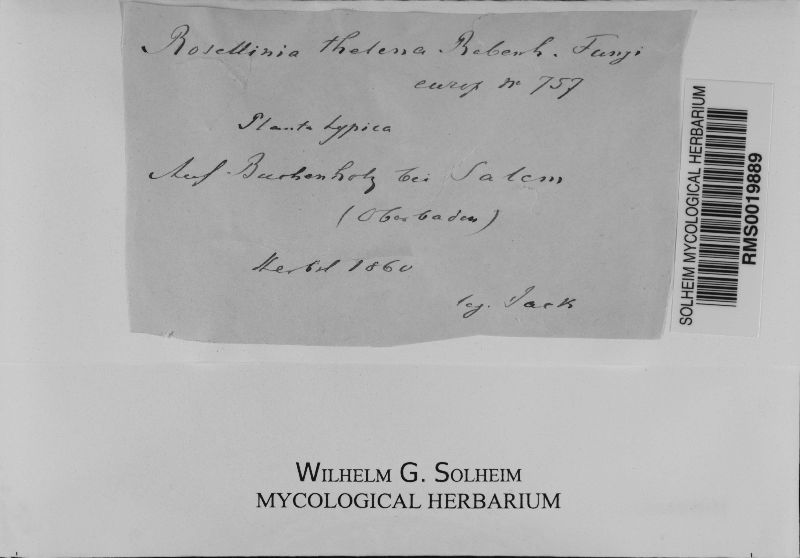 Rosellinia thelena Rabenh. Fungi
europ. Nr 757
Planta typica
Auf Buchenholz bei Salem
(Oberbaden)
Herbst 1860
leg. Jack
SOLHEIM MYCOLOGICAL HERBARIUM
RMS0019889
WILHELM G. SOLHEIM
MYCOLOGICAL HERBARIUM